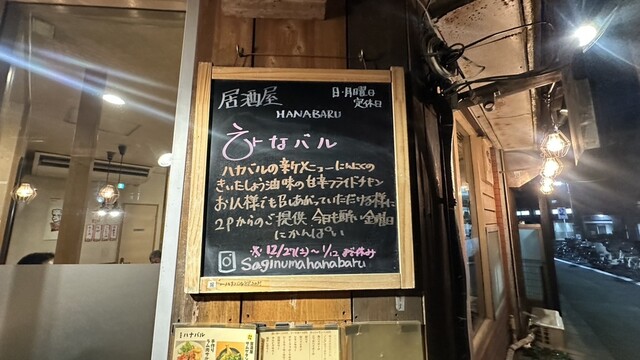 居酒屋
HANABARU
日・月曜日
定休日
ハナバル
ハナバルの新メニューにんにくの
きいたしょう油味の甘辛フライドチキン
お1人様でも召しあがっていただける様に
2Pからのご提供 今日も酔い金曜日
にかんぱーい
※ 12/27(土)〜1/12 お休み
Saginumahanabaru
ハナバル